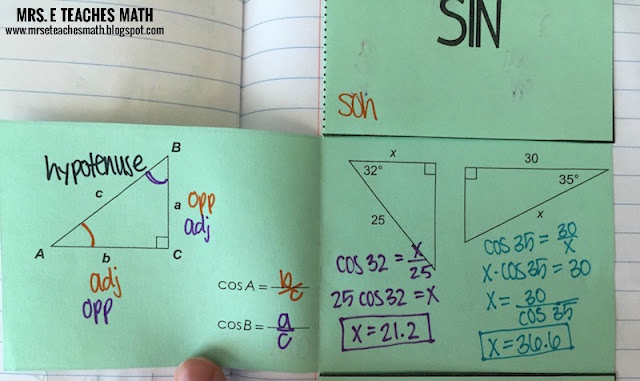 MRS. E TEACHES MATH
www.mrseteachesmath.blogspot.com
SIN
soh
B
hypotenuse
c
a opp
adj
A
b
C
adj
opp
cos A = b/c
cos B = a/c
x
32°
25
cos 32 = x/25
25 cos 32 = x
x = 21.2
30
35°
x
cos 35 = 30/x
x · cos 35 = 30
x = 30/cos 35
x = 36.6